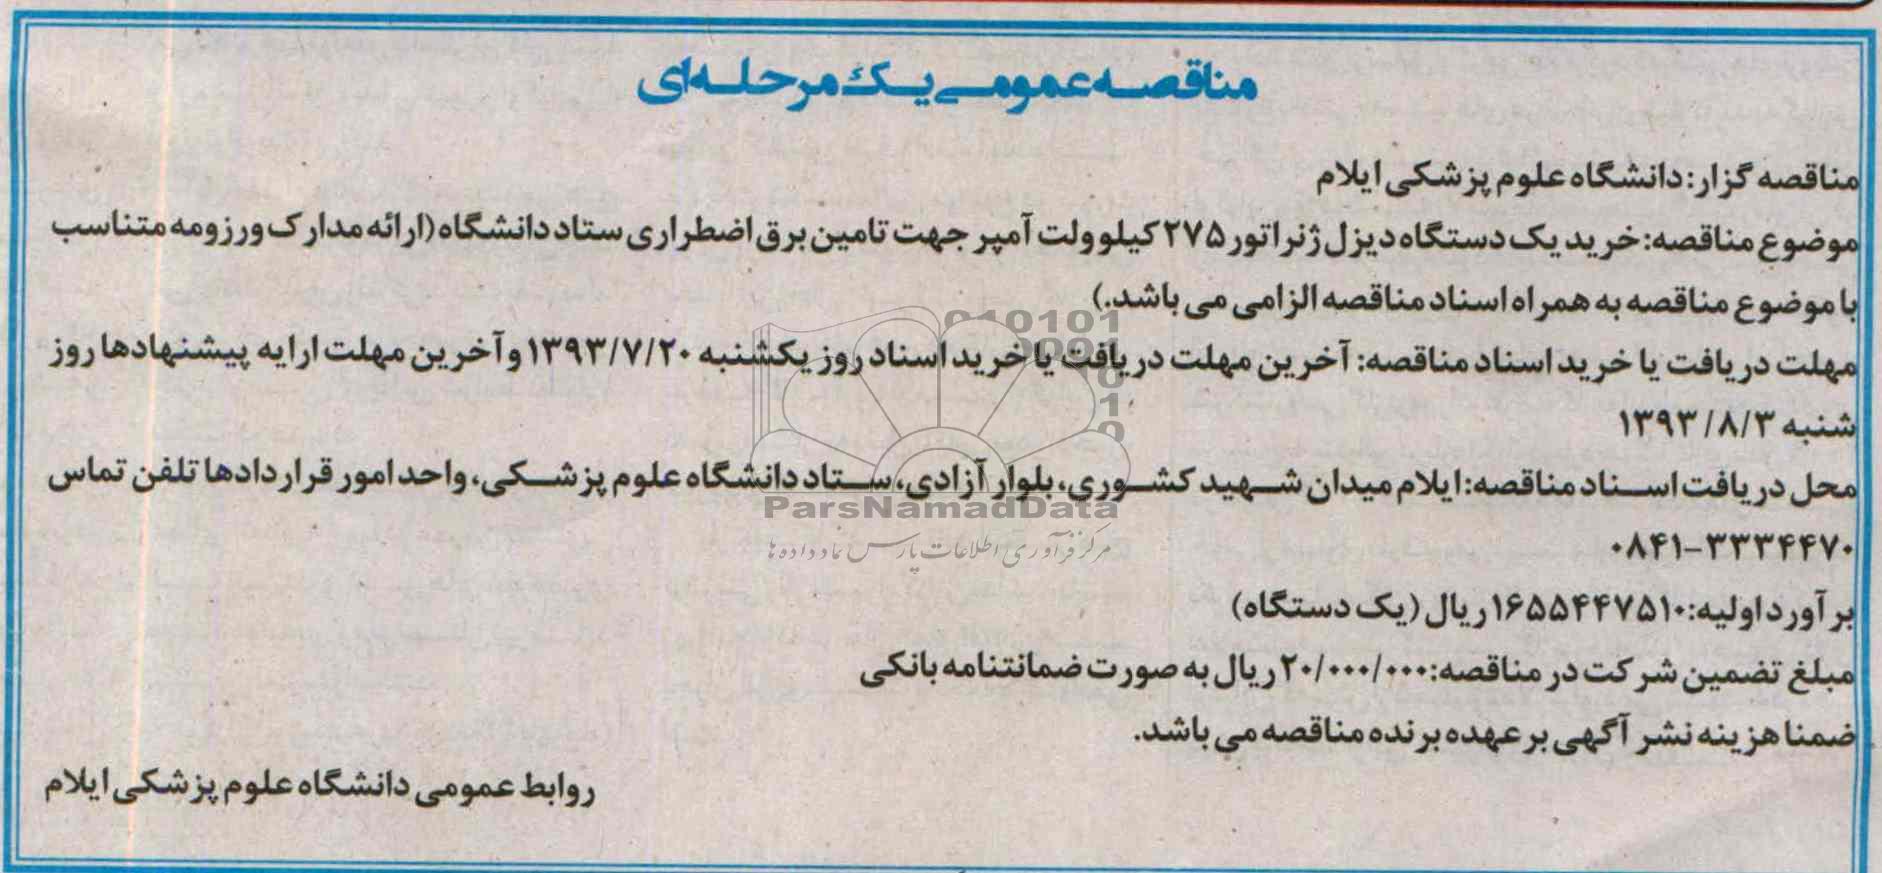 مناقصه عمومی یک مرحله‌ای
مناقصه گزار: دانشگاه علوم پزشکی ایلام
موضوع مناقصه: خرید یک دستگاه دیزل ژنراتور ۲۷۵ کیلوولت آمپر جهت تامین برق اضطراری ستاد دانشگاه (ارائه مدارک و رزومه متناسب
با موضوع مناقصه به همراه اسناد مناقصه الزامی می باشد.)
مهلت دریافت یا خرید اسناد مناقصه: آخرین مهلت دریافت یا خرید اسناد روز یکشنبه ۱۳۹۳/۷/۲۰ و آخرین مهلت ارایه پیشنهادها روز
شنبه ۱۳۹۳/۸/۳
محل دریافت اسناد مناقصه: ایلام میدان شهید کشوری، بلوار آزادی، ستاد دانشگاه علوم پزشکی، واحد امور قراردادها تلفن تماس
۰۸۴۱-۳۳۳۴۴۷۰
برآورد اولیه: ۱۶۵۵۴۴۷۵۱۰ ریال (یک دستگاه)
مبلغ تضمین شرکت در مناقصه: ۲۰/۰۰۰/۰۰۰ ریال به صورت ضمانتنامه بانکی
ضمنا هزینه نشر آگهی بر عهده برنده مناقصه می باشد.
روابط عمومی دانشگاه علوم پزشکی ایلام
010101
ParsNamadData
مرکز فرآوری اطلاعات پارس نماد داده ها